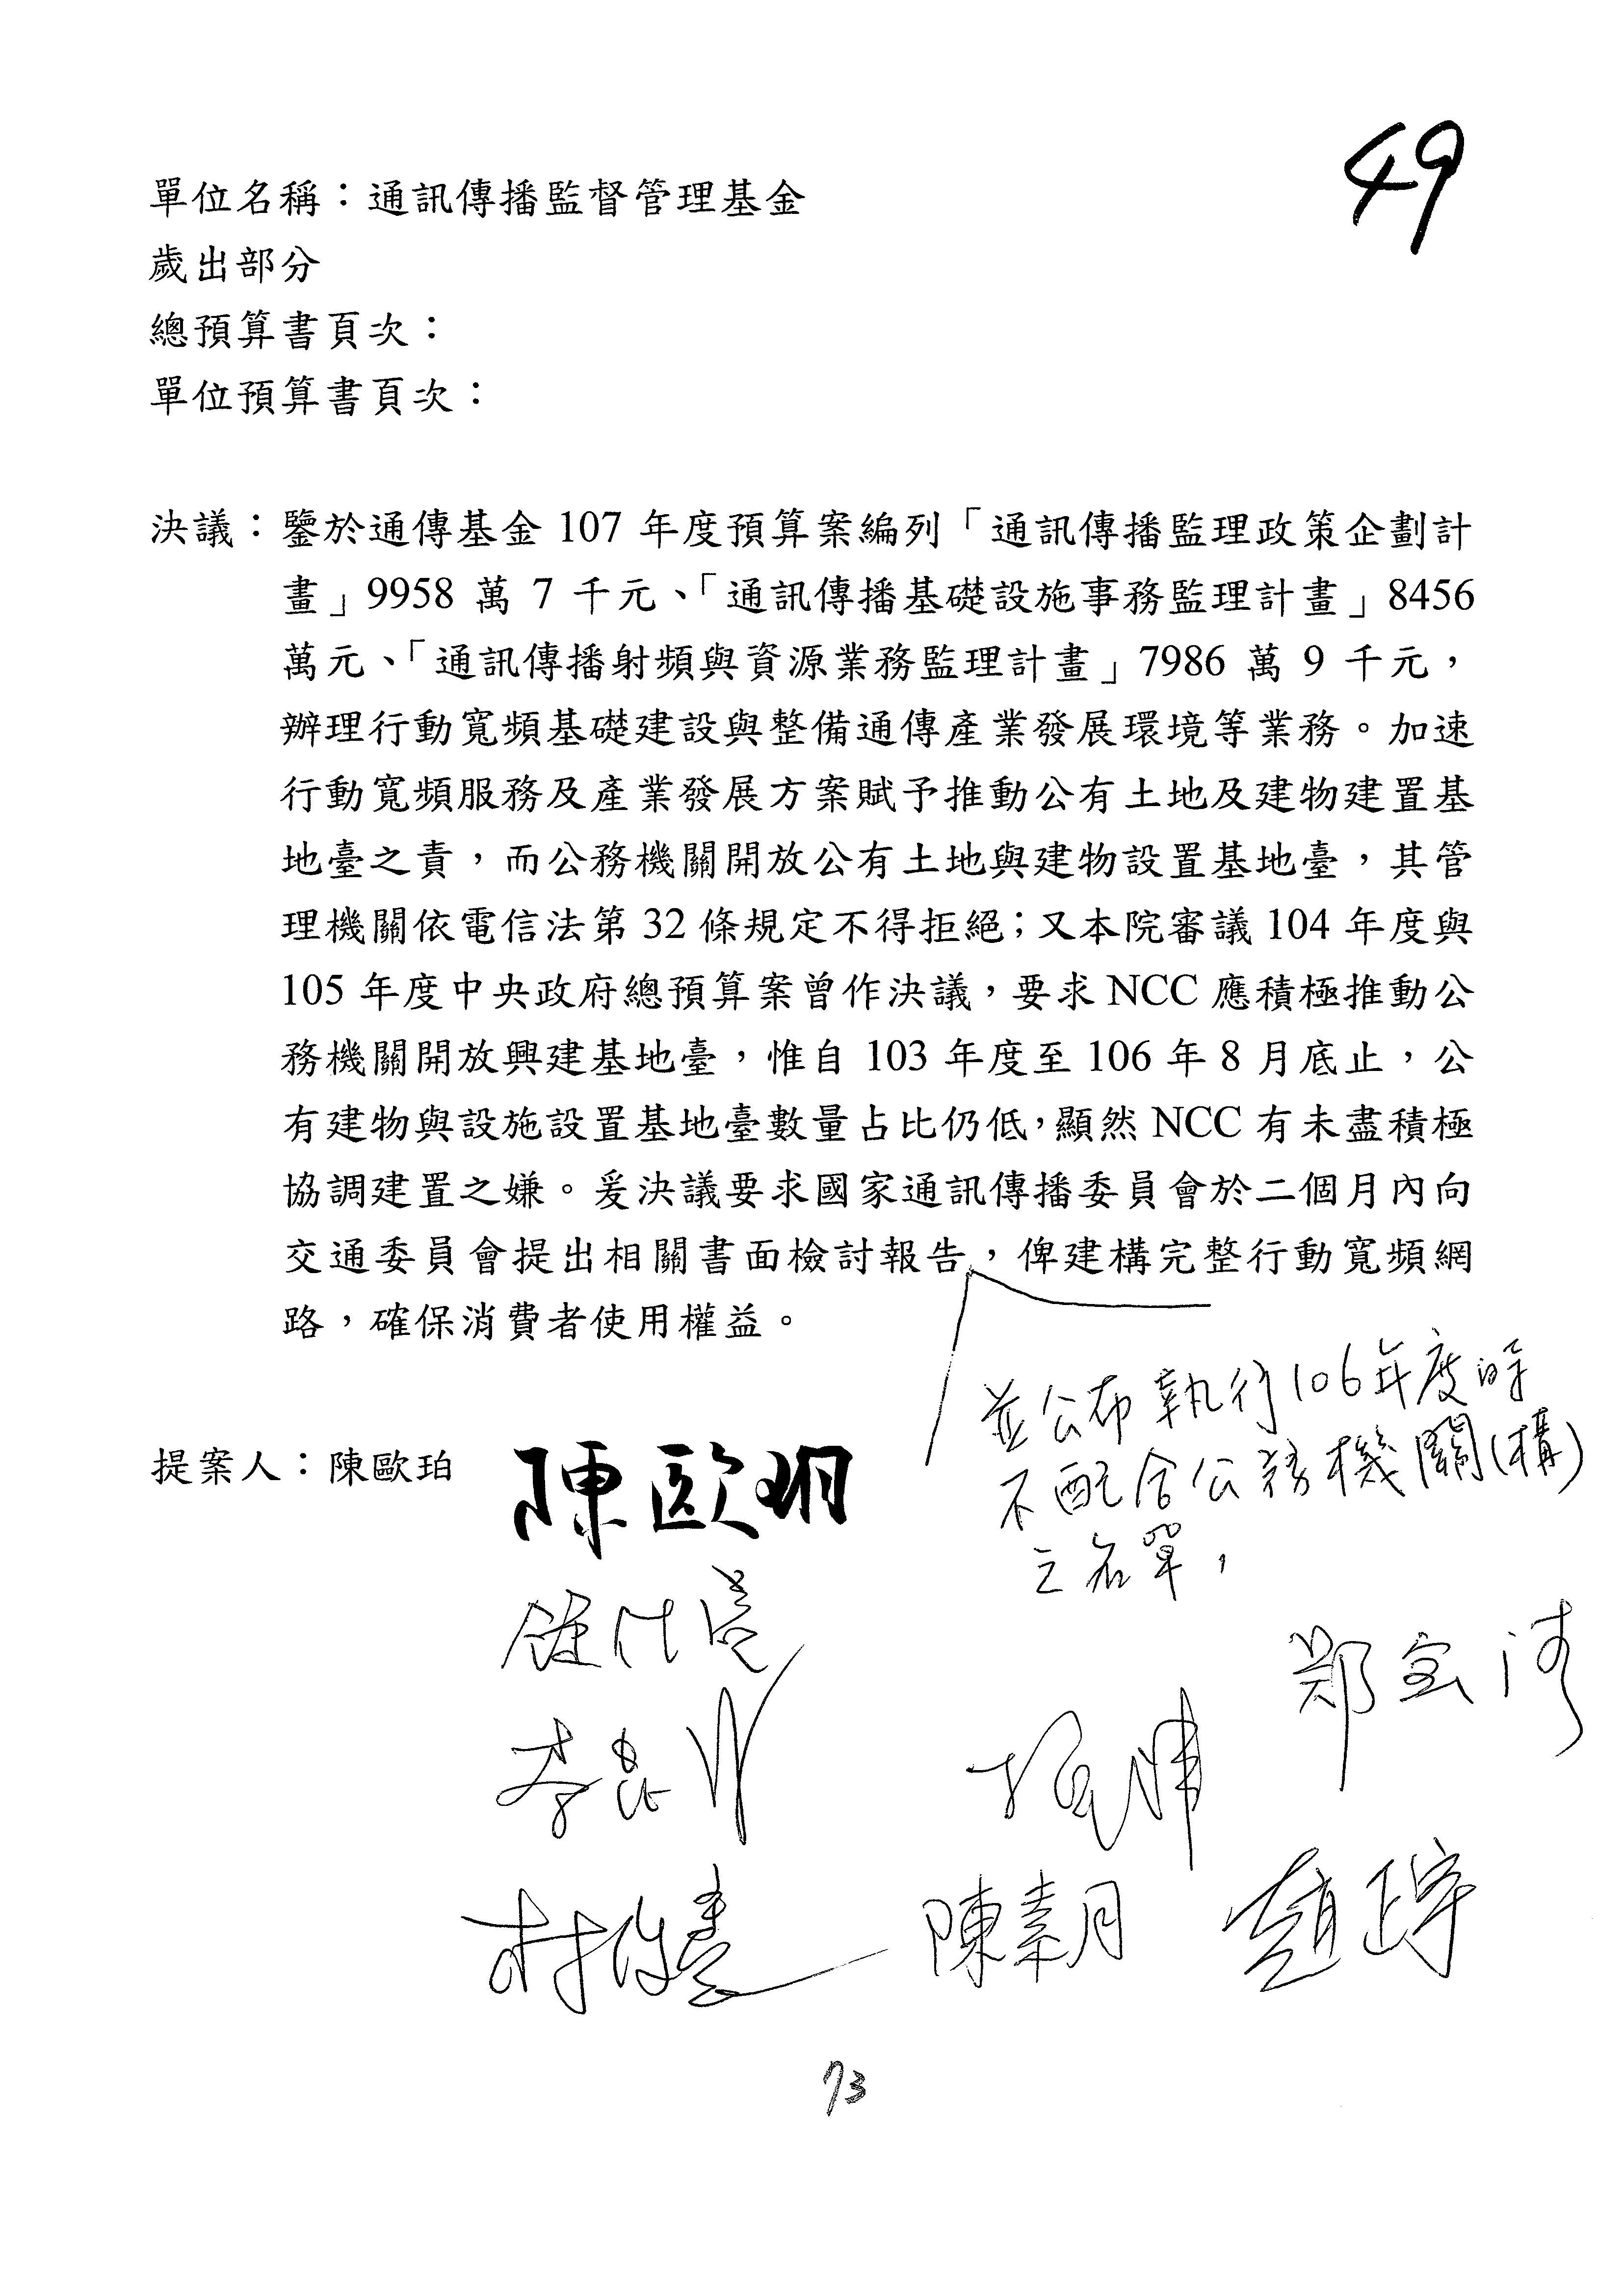 49
單位名稱：通訊傳播監督管理基金
歲出部分
總預算書頁次：
單位預算書頁次：
決議：鑒於通傳基金 107 年度預算案編列「通訊傳播監理政策企劃計
畫」9958 萬 7 千元、「通訊傳播基礎設施事務監理計畫」8456
萬元、「通訊傳播射頻與資源業務監理計畫」7986 萬 9 千元，
辦理行動寬頻基礎建設與整備通傳產業發展環境等業務。加速
行動寬頻服務及產業發展方案賦予推動公有土地及建物建置基
地臺之責，而公務機關開放公有土地與建物設置基地臺，其管
理機關依電信法第 32 條規定不得拒絕；又本院審議 104 年度與
105 年度中央政府總預算案曾作決議，要求 NCC 應積極推動公
務機關開放興建基地臺，惟自 103 年度至 106 年 8 月底止，公
有建物與設施設置基地臺數量占比仍低，顯然 NCC 有未盡積極
協調建置之嫌。爰決議要求國家通訊傳播委員會於二個月內向
交通委員會提出相關書面檢討報告，俾建構完整行動寬頻網
路，確保消費者使用權益。
並公布執行106年度時
不配合公務機關(構)
之名單，
提案人：陳歐珀
陳歐珀
鄭宝清
陳素月
趙正宇
73